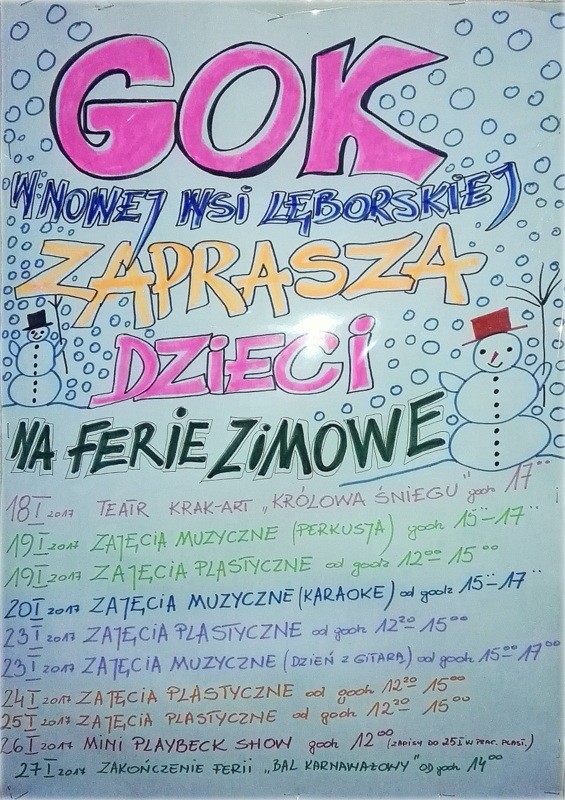 GOK
W NOWEJ WSI LĘBORSKIEJ
ZAPRASZA
DZIECI
NA FERIE ZIMOWE
18 I 2017 TEATR KRAK-ART „KRÓLOWA ŚNIEGU" godz 17°°
19 I 2017 ZAJĘCIA MUZYCZNE (PERKUSJA) godz 15°°-17°°
19 I 2017 ZAJĘCIA PLASTYCZNE od godz 12°° 15°°
20 I 2017 ZAJĘCIA MUZYCZNE (KARAOKE) od godz 15°°-17°°
23 I 2017 ZAJĘCIA PLASTYCZNE od godz 12²⁰ 15°°
23 I 2017 ZAJĘCIA MUZYCZNE (DZIEŃ Z GITARĄ) od godz 15°°-17°°
24 I 2017 ZAJĘCIA PLASTYCZNE od godz 12²⁰ 15°°
25 I 2017 ZAJĘCIA PLASTYCZNE od godz 12²⁰ 15°°
26 I 2017 MINI PLAYBECK SHOW godz 12°° (ZAPISY DO 25 I W PRAC. PLAST.)
27 I 2017 ZAKOŃCZENIE FERII „BAL KARNAWAŻOWY" OD godz 14°°